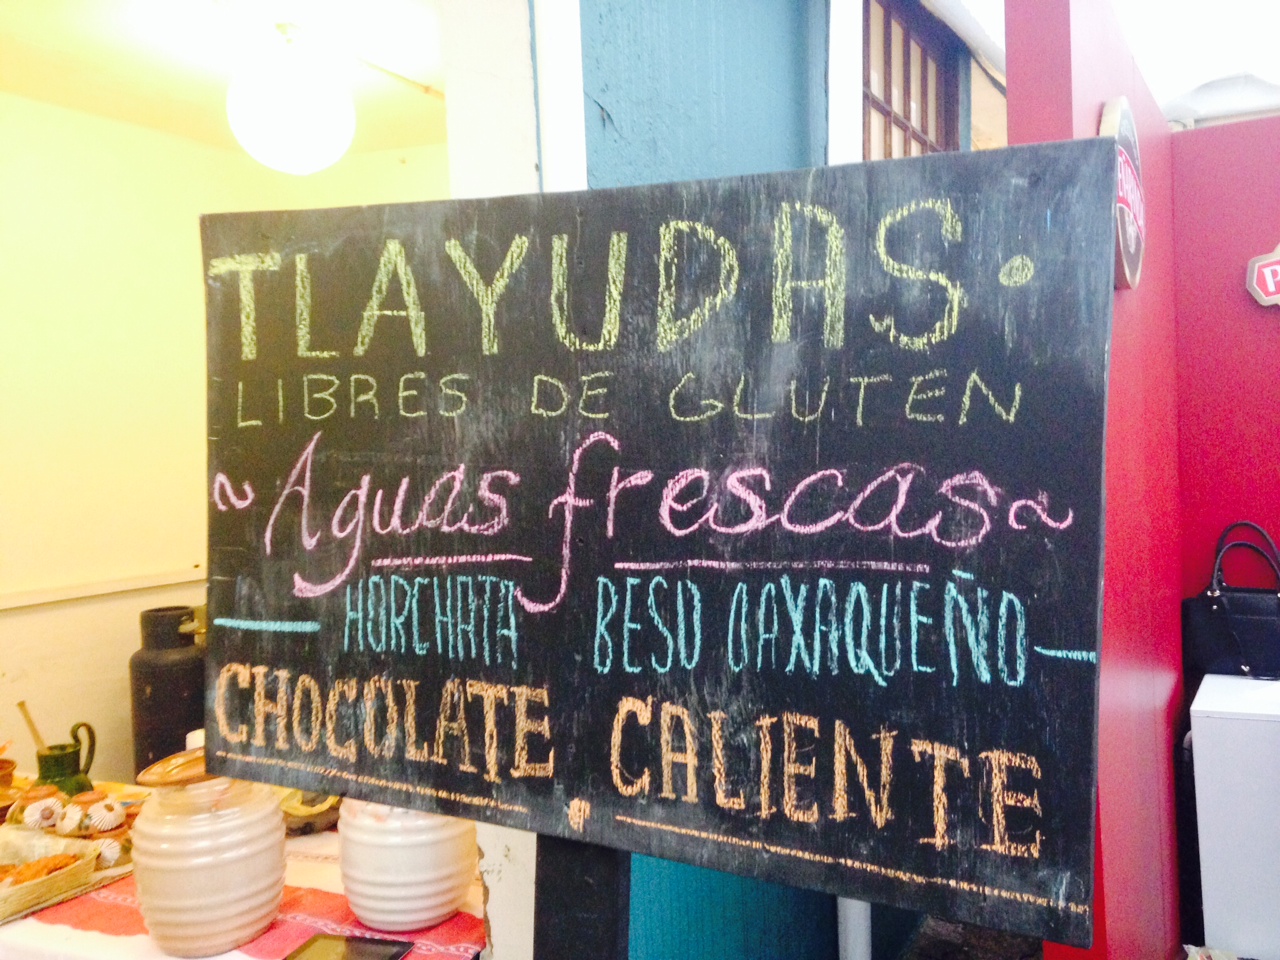 TLAYUDAS.
LIBRES DE GLUTEN
~Aguas frescas~
HORCHATA BESO OAXAQUEÑO
CHOCOLATE CALIENTE